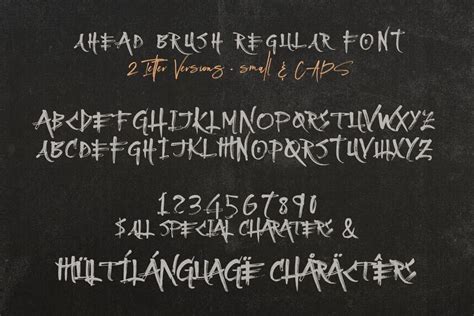 AHEAD BRUSH REGULAR FONT
2 letter Versions - small & CAPS
ABCDEFGHIJKLMNOPQRSTUVWXYZ
ABCDEFGHIJKLMNOPQRSTUVWXYZ
1234567890
$ ALL SPECIAL CHARATERS &
MÜLTÍLÁNGUAGË CHÁRÄCTÊRS